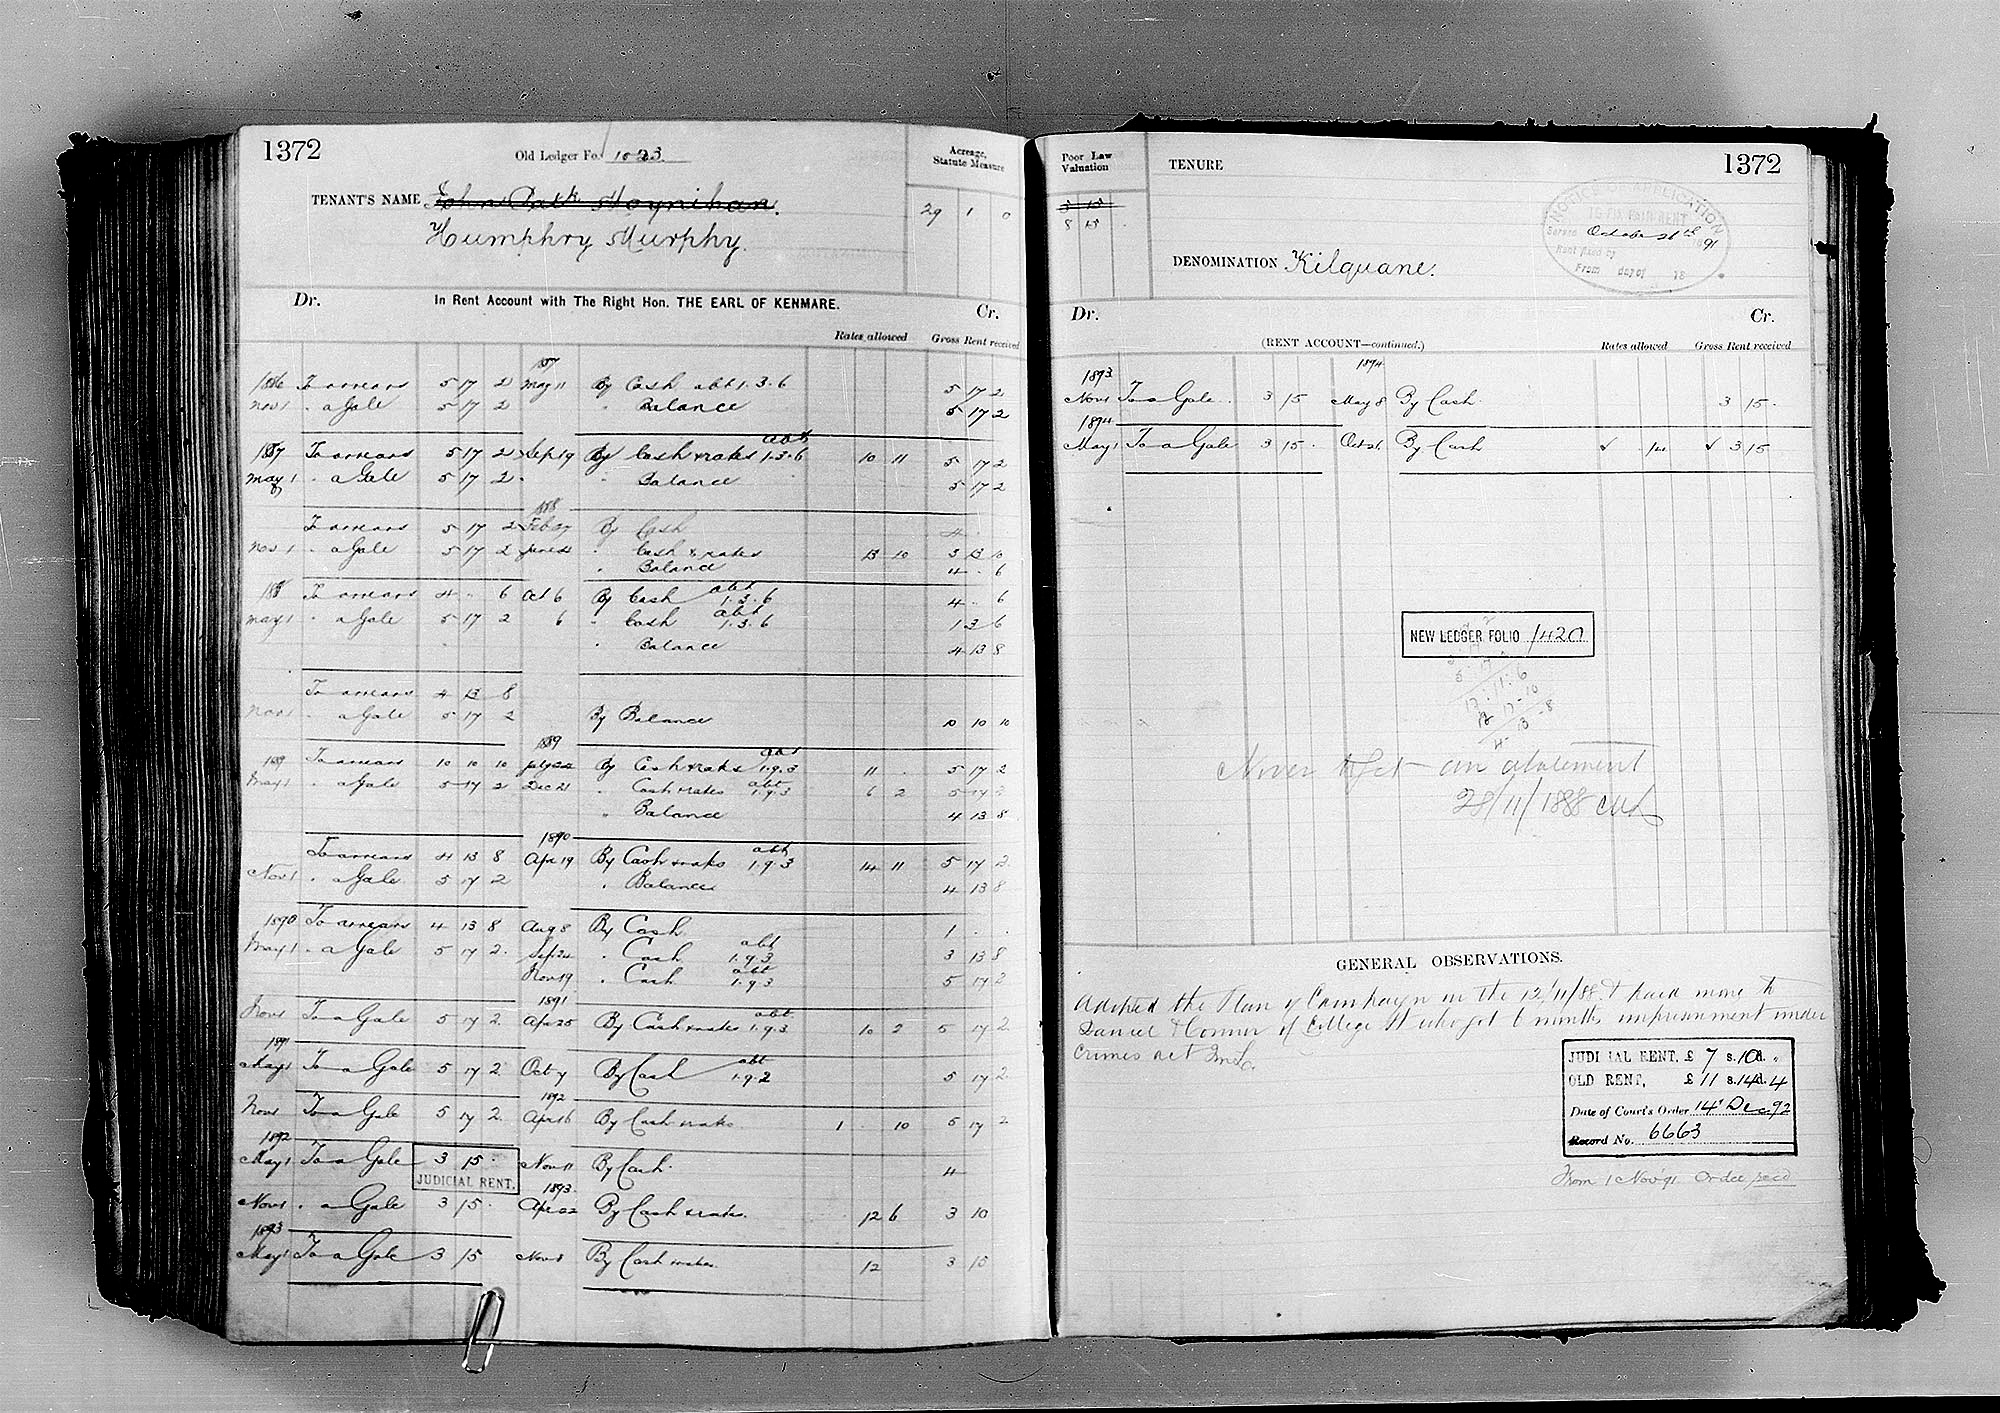 1372
Old Ledger Fo. 1023
Acreage, Statute Measure
TENANT'S NAME John Patk Moynihan.
Humphry Murphy.
29 1 0
Dr. In Rent Account with The Right Hon. THE EARL OF KENMARE. Cr.
Rates allowed Gross Rent received
1887
1886 To arrears 5 17 2 May 11 By Cash abt 1.3.6 5 17 2
Nov 1 " a Gale 5 17 2 " Balance 5 17 2
1887 To arrears 5 17 2 Sep 19 By Cash & rates abt 1.3.6 10 11 5 17 2
May 1 " a Gale 5 17 2 " Balance 5 17 2
1888
To arrears 5 17 2 Feb 27 By Cash 4
Nov 1 " a Gale 5 17 2 June " Cash & rates 13 10 3 13 10
" Balance 4 " 6
188 To arrears 4 " 6 Oct 6 By Cash abt 1.3.6 4 " 6
May 1 " a Gale 5 17 2 6 " Cash abt 1.3.6 1 3 6
" Balance 4 13 8
To arrears 4 13 8
Nov 1 " a Gale 5 17 2 By Balance 10 10 10
1889
1889 To arrears 10 10 10 July 22 By Cash & rates abt 1.9.3 11 . 5 17 2
May 1 " a Gale 5 17 2 Dec 21 " Cash & rates abt 1.9.3 6 2 5 17 2
" Balance 4 13 8
1890
To arrears 4 13 8 Apr 19 By Cash & rates abt 1.9.3 14 11 5 17 2
Nov 1 " a Gale 5 17 2 " Balance 4 13 8
1890 To arrears 4 13 8 Aug 8 By Cash 1 . .
May 1 " a Gale 5 17 2 Sep 24 " Cash abt 1.9.3 3 13 8
Nov 19 " Cash abt 1.9.3 5 17 2
1891
Nov 1 To a Gale 5 17 2 Apr 25 By Cash & rates abt 1.9.3 10 2 5 17 2
1891
May 1 To a Gale 5 17 2 Oct 7 By Cash abt 1.9.2 5 17 2
1892
Nov 1 To a Gale 5 17 2 Apr 16 By Cash & rates 1 . 10 5 17 2
1892
May 1 To a Gale 3 15 . Nov 11 By Cash. 4
JUDICIAL RENT.
1893
Nov 1 " a Gale 3 15 . Apr 22 By Cash & rates. 12 6 3 10
1893
May 1 To a Gale 3 15 Nov 8 By Cash & rates 12 3 15
Poor Law Valuation
TENURE
1372
5 15
8 15
NOTICE OF APPLICATION
TO FIX FAIR RENT
Served October 26th 1891
Rent fixed by
From day of 18
DENOMINATION Kilquane.
Dr. Cr.
(RENT ACCOUNT—continued.) Rates allowed Gross Rent received
1893 1894
Nov 1 To a Gale . 3 15 May 8 By Cash . 3 15 .
1894
May 1 To a Gale 3 15 . Oct 26 By Cash 14 3 15
NEW LEDGER FOLIO 1420
Never to get an abatement
28/11/1888
GENERAL OBSERVATIONS.
Adopted the Plan of Campaign on the 12/11/88 & paid money to
Daniel O'Connor of College St who got 6 months imprisonment under
Crimes act
JUDICIAL RENT, £ 7 s. 10 d. "
OLD RENT, £ 11 s. 14 d. 4
Date of Court's Order 14' Dec. 92
Record No. 6663
From 1 Nov '91 Order recd